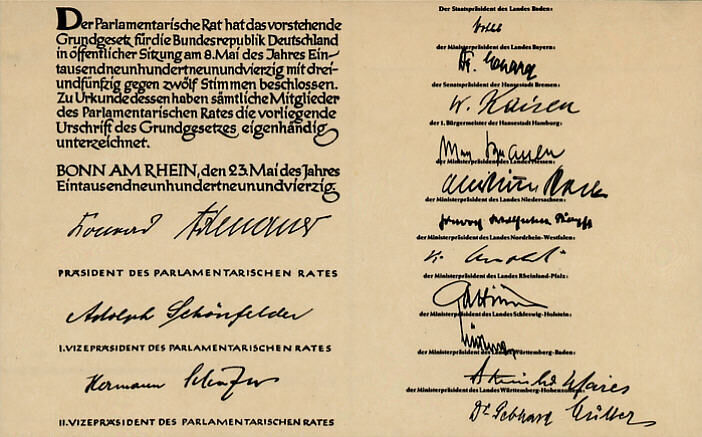 Der Parlamentarische Rat hat das vorstehende
Grundgesetz für die Bundesrepublik Deutschland
in öffentlicher Sitzung am 8. Mai des Jahres Ein-
tausendneunhundertneunundvierzig mit drei-
undfünfzig gegen zwölf Stimmen beschlossen.
Zu Urkunde dessen haben sämtliche Mitglieder
des Parlamentarischen Rates die vorliegende
Urschrift des Grundgesetzes eigenhändig
unterzeichnet.
BONN AM RHEIN, den 23. Mai des Jahres
Eintausendneunhundertneunundvierzig
Konrad Adenauer
PRÄSIDENT DES PARLAMENTARISCHEN RATES
Adolph Schönfelder
I. VIZEPRÄSIDENT DES PARLAMENTARISCHEN RATES
Hermann Schäfer
II. VIZEPRÄSIDENT DES PARLAMENTARISCHEN RATES
Der Staatspräsident des Landes Baden:
Wohleb
der Ministerpräsident des Landes Bayern:
Dr. Ehard
der Senatspräsident der Hansestadt Bremen:
W. Kaisen
der 1. Bürgermeister der Hansestadt Hamburg:
Max Brauer
der Ministerpräsident des Landes Hessen:
Christian Stock
der Ministerpräsident des Landes Niedersachsen:
Hinrich Wilhelm Kopf
der Ministerpräsident des Landes Nordrhein-Westfalen:
K. Arnold
der Ministerpräsident des Landes Rheinland-Pfalz:
Altmeier
der Ministerpräsident des Landes Schleswig-Holstein:
Lüdemann
der Ministerpräsident des Landes Württemberg-Baden:
Reinhold Maier
der Ministerpräsident des Landes Württemberg-Hohenzollern:
Dr. Gebhard Müller